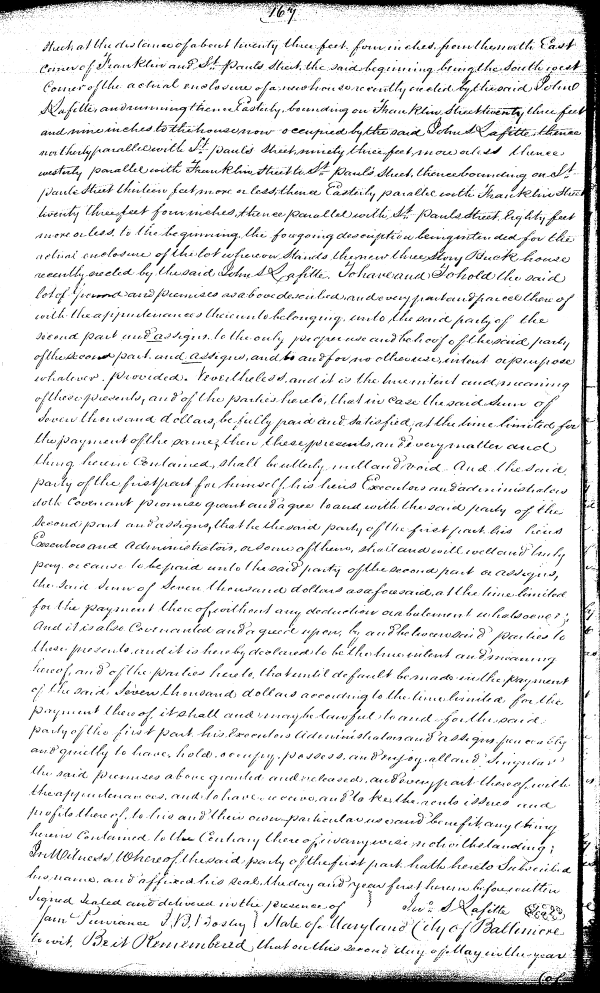 167
street, at the distance of about twenty three feet, four inches, from the north East
corner of Franklin and St. Pauls Street, the said beginning being the South west
Corner of the actual enclosure of a new house recently erected by the said John
S Lafitte, and running thence Easterly, bounding on Franklin Street twenty three feet
and nine inches to the house now occupied by the said John S Lafitte, thence
northerly parallel with St. pauls Street, ninety three feet, more or less thence
westerly parallel with Franklin Street to St. Pauls Street, thence bounding on St.
pauls Street thirteen feet, more or less, thence Easterly parallel with Franklin Street
twenty three feet four inches, thence parallel with St. Pauls Street, Eighty feet
more or less, to the beginning, the foregoing description being intended for the
actual enclosure of the lot whereon Stands the new three Story Brick house
recently erected by the said John S Lafitte. To have and To hold the said
lot of Ground and premises as above described, and every part and parcel thereof
with the appurtenances thereunto belonging, unto the said party of the
second part and assigns, to the only proper use and behoof of the said party
of the second part, and assigns, and to and for no other use, intent or purpose
whatever, provided, Nevertheless, and it is the true intent and meaning
of these presents, and of the parties hereto, that in case the said Sum of
Seven thousand dollars, be fully paid and satisfied, at the time limited for
the payment of the same, then these presents, and every matter and
thing herein Contained, shall be utterly null and void. And the said
party of the first part for himself, his heirs Executors and administrators
doth Covenant promise grant and agree to and with the said party of the
Second part and assigns, that he the said party of the first part his heirs
Executors and Administrators, or some of them, shall and will well and truly
pay, or cause to be paid unto the said party of the second part or assigns,
the said Sum of Seven thousand dollars as aforesaid, at the time limited
for the payment thereof, without any deduction or abatement whatsoever;
And it is also Covenanted and agreed upon, by and between said parties to
these presents, and it is hereby declared to be the true intent and meaning
hereof, and of the parties hereto, that until default be made in the payment
of the said Seven thousand dollars according to the time limited for the
payment thereof, it shall and may be lawful to and for the said
party of the first part, his Executors Administrators and assigns, peaceably
and quietly to have, hold, occupy, possess, and enjoy, all and Singular
the said premises above granted and released, and every part thereof, with
the appurtenances, and to have, receive, and to take the rents issues and
profits thereof, to his and their own particular use and benefit, anything
herein Contained to the Contrary thereof in any wise notwithstanding;
In Witness Whereof, the said party of the first part, hath hereto Subscribed
his name, and affixed his seal, the day and year first herein before written
Signed Sealed and delivered in the presence of } Jno. S Lafitte
Jam Purviance } State of Maryland City of Baltimore
to wit, Be it Remembered, that on this second day of May in the year